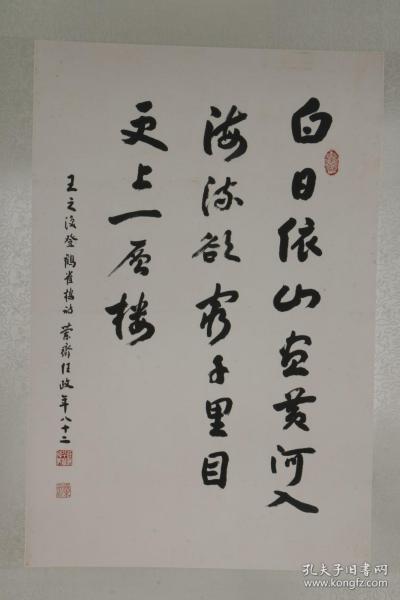 白日依山尽黄河入
海流欲穷千里目
更上一层楼
王之涣登鹳雀楼诗 兰斋任政年八十二
孔夫子旧书网
www.kongfz.com